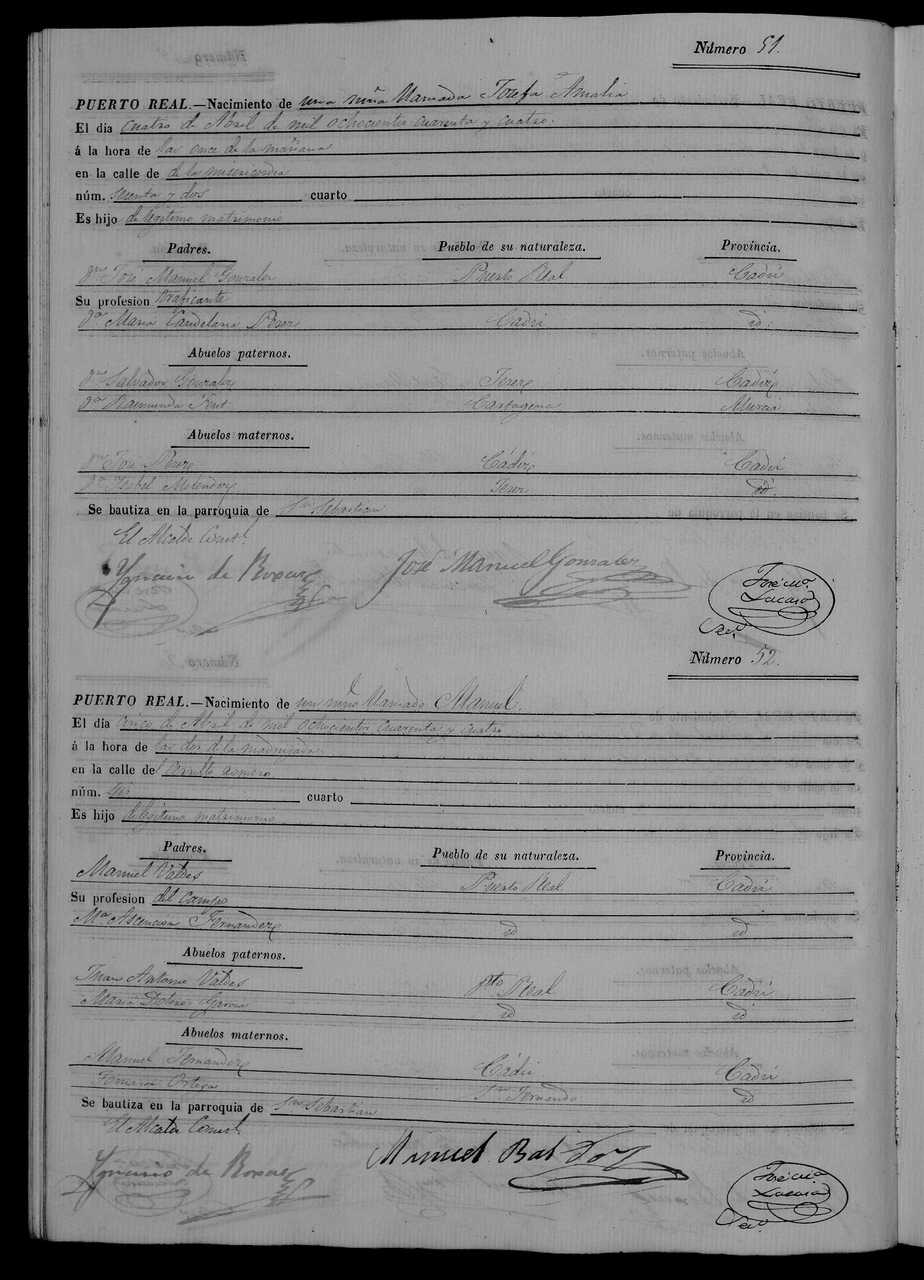 Número 51.
PUERTO REAL.—Nacimiento de una niña llamada Josefa Amalia
El dia cuatro de Abril de mil ochocientos cuarenta y cuatro.
á la hora de las once de la mañana
en la calle de de la misericordia
núm. y dos cuarto
Es hijo de lejitimo matrimonio
Padres. Pueblo de su naturaleza. Provincia.
Dn José Manuel Gonzalez Puerto Real Cadiz
Su profesion traficante
Da Maria Candelaria Perez Cadiz id.
Abuelos paternos.
Dn Salvador Gonzalez Jerez Cadiz
Da Raimunda Cartagena Murcia
Abuelos maternos.
Dn José Perez Cádiz Cadiz
Da Isabel Jerez id
Se bautiza en la parroquia de Sn Sebastian
El Alcalde Const.l
Ygnacio de José Manuel Gonzalez
José Ma.
Lacaso
Sec.o
Número 52.
PUERTO REAL.—Nacimiento de un niño llamado Manuel.
El dia cinco de Abril de mil ochocientos cuarenta y cuatro
á la hora de las dos de la madrugada
en la calle de
núm. cuarto
Es hijo de lejitimo matrimonio
Padres. Pueblo de su naturaleza. Provincia.
Manuel Valdes Puerto Real Cadiz
Su profesion del campo
Ma Ascencion Fernandez id id
Abuelos paternos.
Juan Antonio Valdes Pto Real Cadiz
Maria Dolores id id
Abuelos maternos.
Manuel Fernandez Cádiz Cadiz
Ortega Sn Fernando id
Se bautiza en la parroquia de Sn Sebastian
El Alcalde Const.l
Ygnacio de Manuel Bal
José Ma.
Lacaso
Sec.o